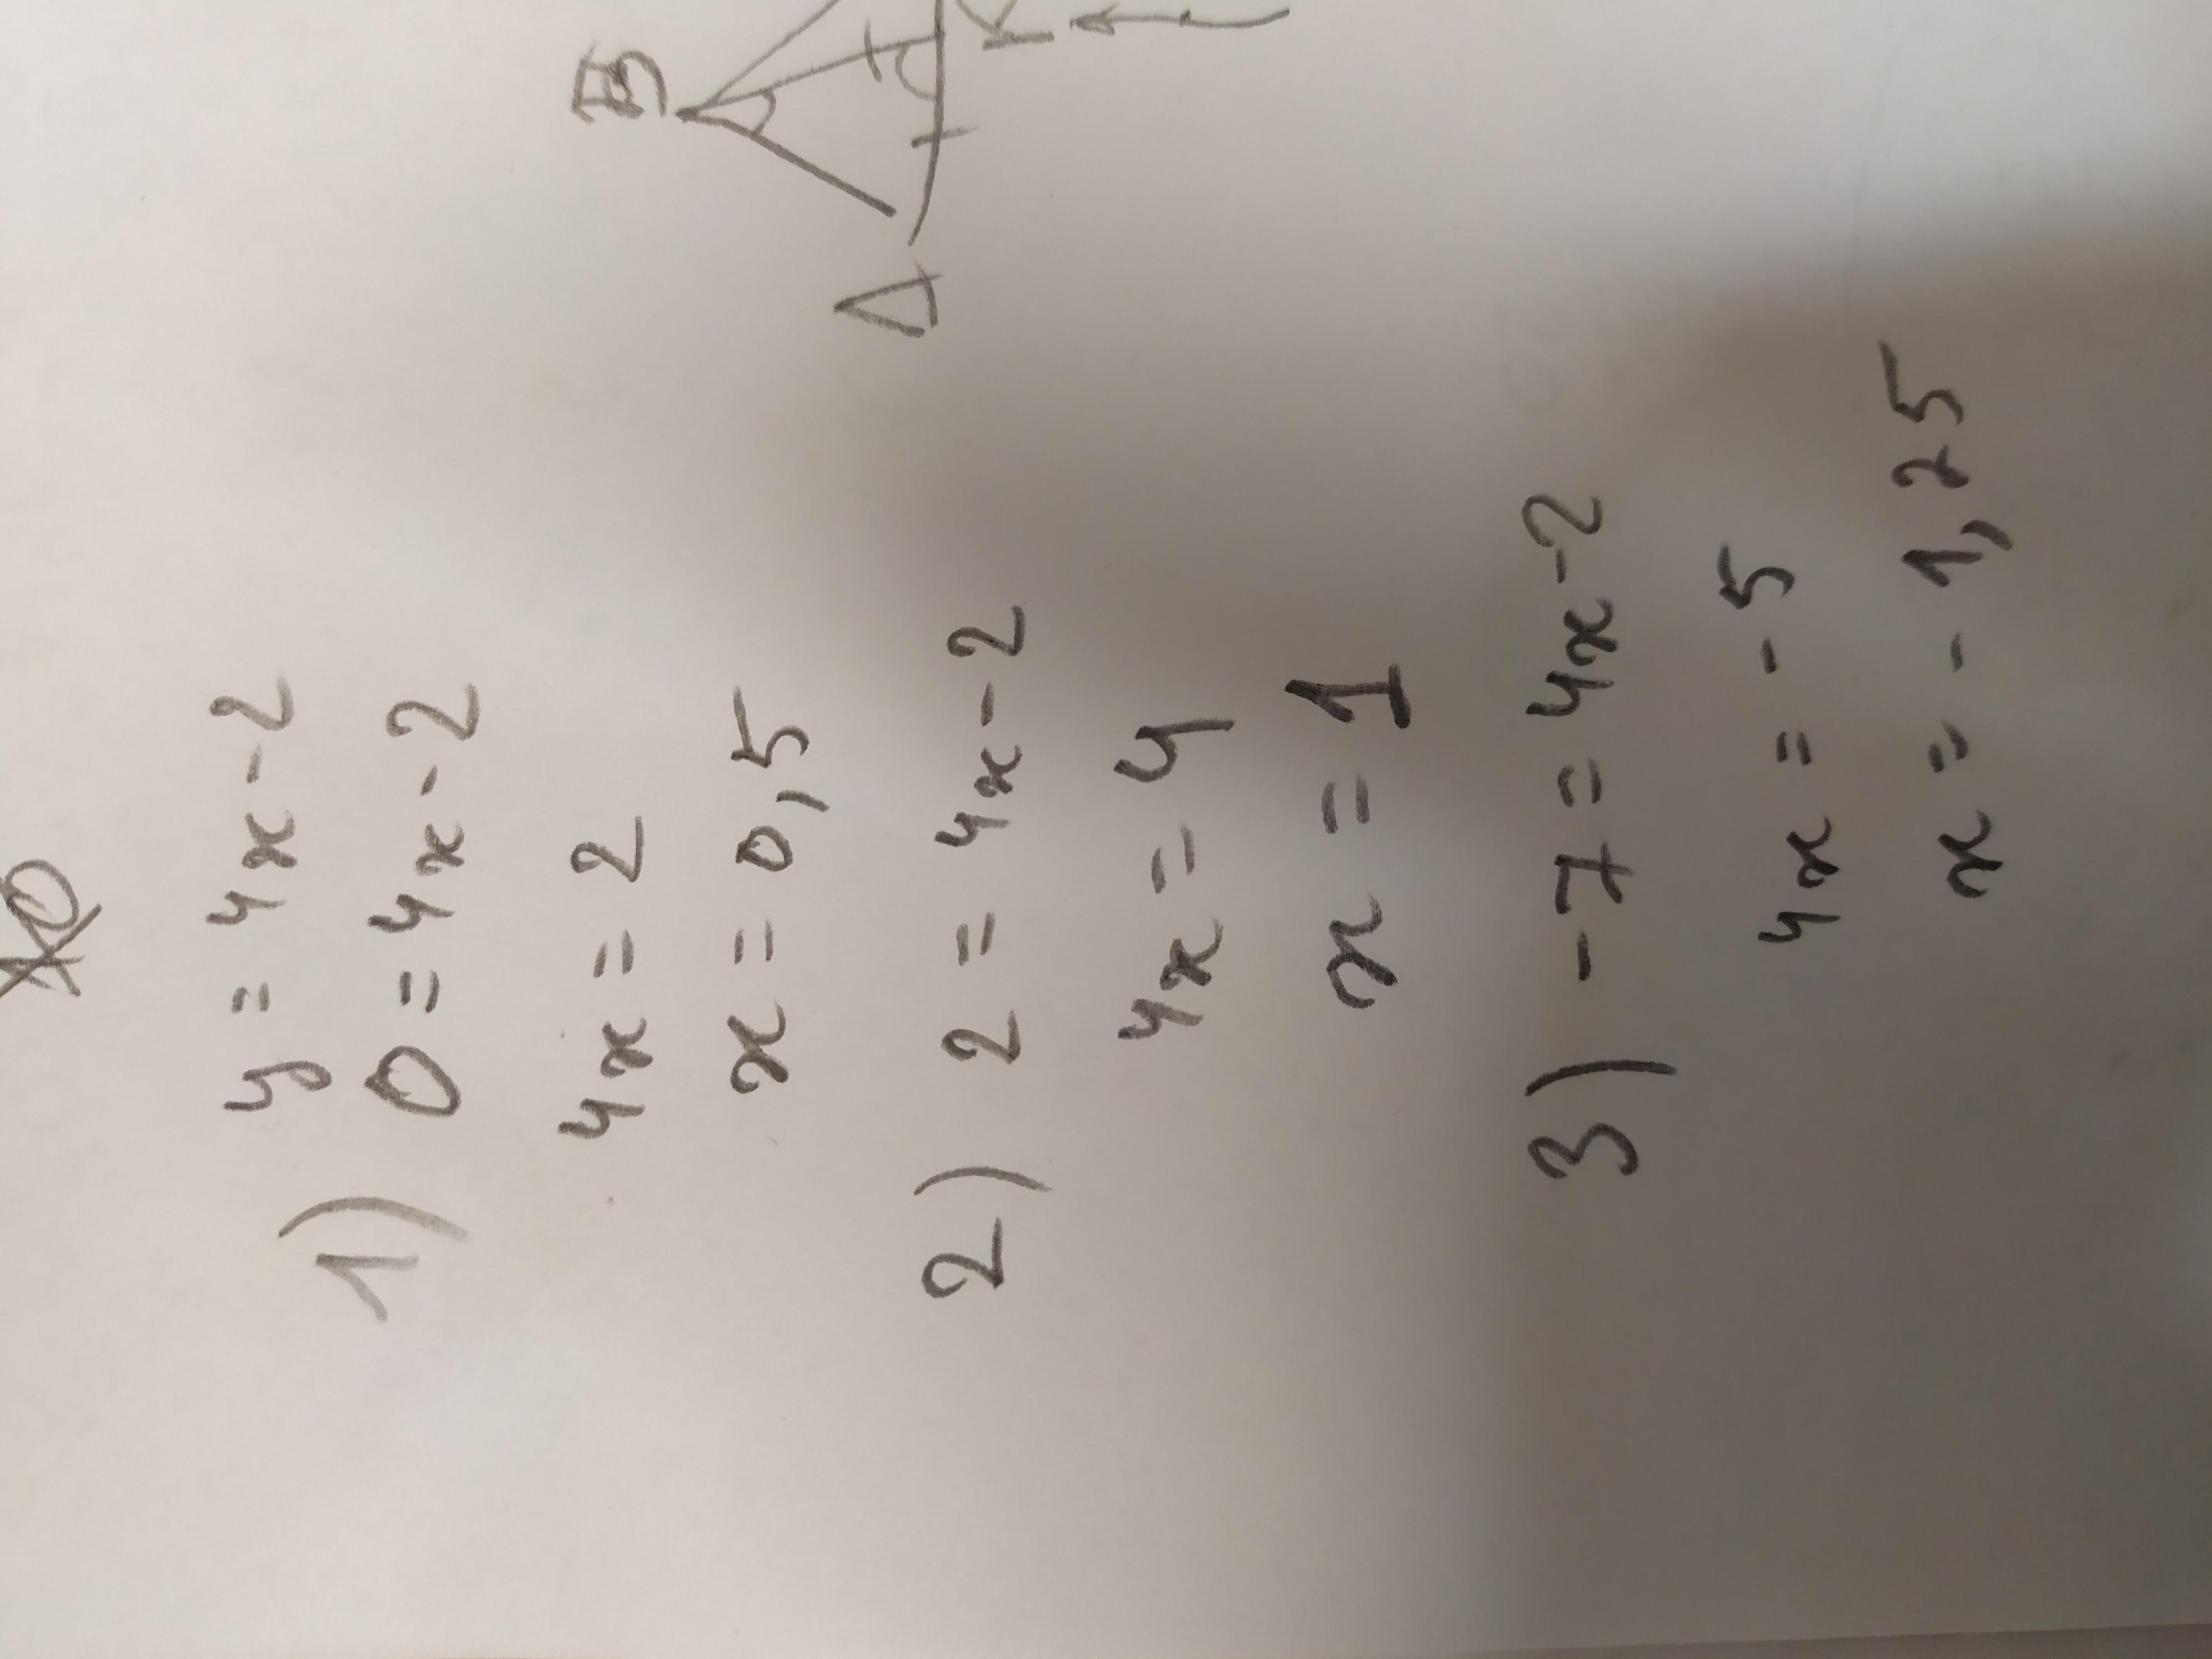 y = 4x - 2
1) 0 = 4x - 2
4x = 2
x = 0,5
2) 2 = 4x - 2
4x = 4
x = 1
3) -7 = 4x - 2
4x = -5
x = -1,25
B
A
K